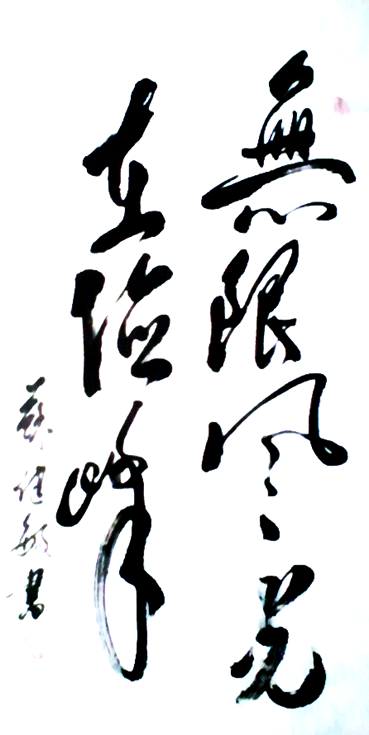 無限風光
在險峰
蘇佳敏書